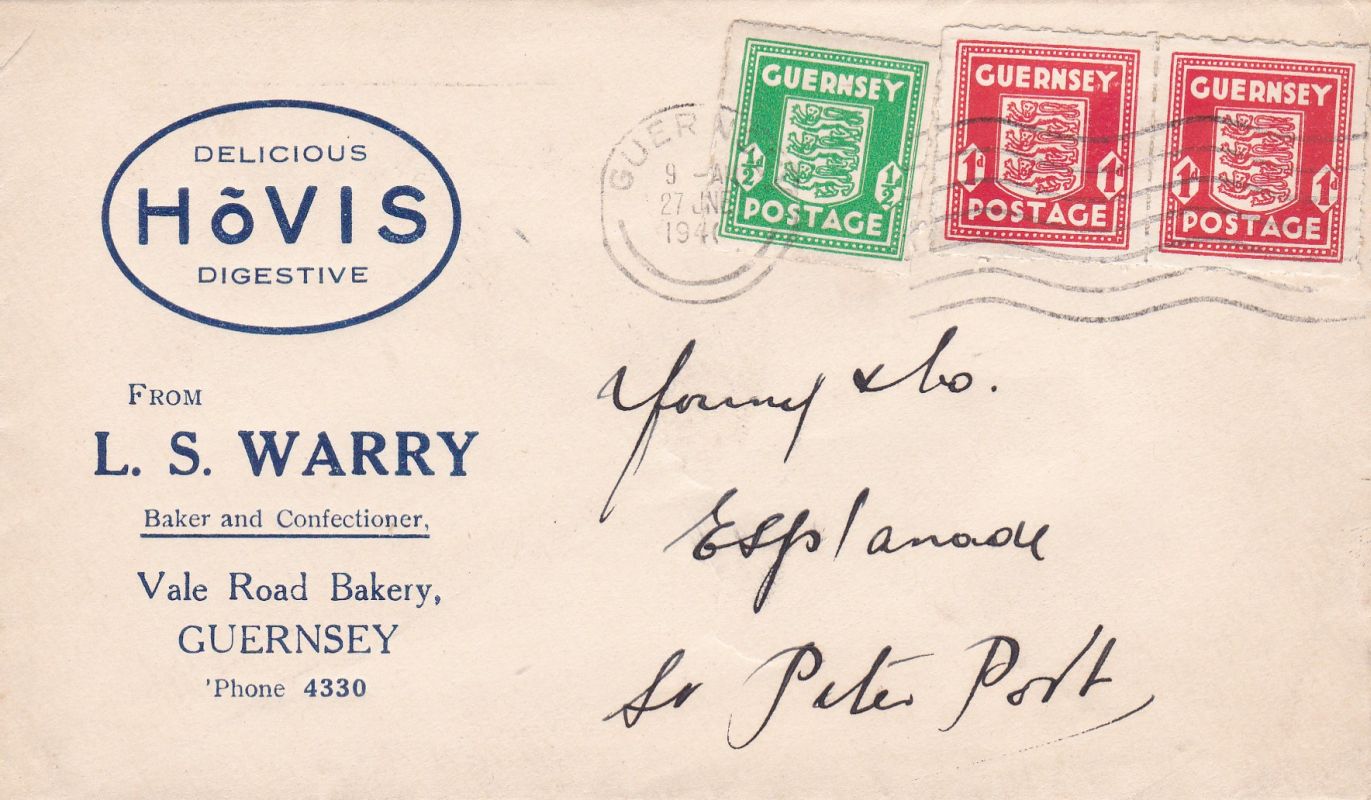 DELICIOUS
HõVIS
DIGESTIVE
FROM
L. S. WARRY
Baker and Confectioner,
Vale Road Bakery,
GUERNSEY
'Phone 4330
GUERNSEY
½ ½
POSTAGE
GUERNSEY
1d 1d
POSTAGE
GUERNSEY
1d 1d
POSTAGE
GUERN
9 -AM
27 JNE
194
Young & Co.
Esplanade
St Peter Port